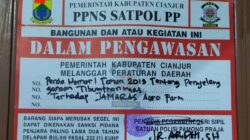 PEMERINTAH KABUPATEN CIANJUR
PPNS SATPOL PP
BANGUNAN DAN ATAU KEGIATAN INI
DALAM PENGAWASAN
PEMERINTAH KABUPATEN CIANJUR
MELANGGAR PERATURAN DAERAH
Perda Nomor 1 Tahun 2019 Tentang Penyeleng
garaan Tibumtranmas
Terhadap JAMARAS Agro Farm
BARANG SIAPA MERUSAK SEGEL INI
DAPAT DIKENAKAN SANKSI PIDANA
PENJARA PALING LAMA DUA TAHUN
DELAPAN BULAN PASAL 232
PEGAWAI NEGERI SIPIL
SATUAN POLISI PAMONG PRAJA
SH